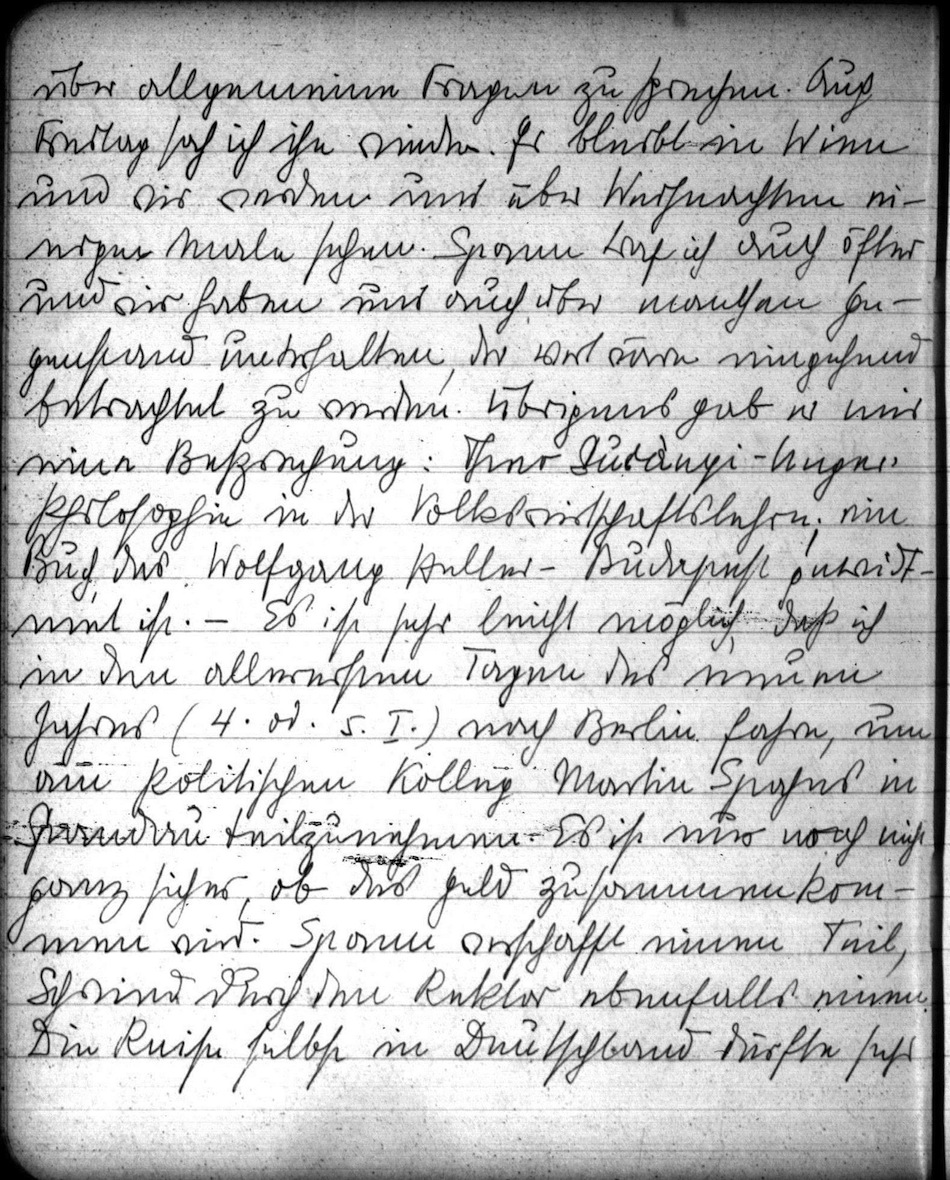 über allgemeine Fragen zu sprechen. Auch
Freitag sah ich ihn wieder. Er bleibt in Wien
und wir werden uns über Weihnachten ei-
nige Male sehen. Spann traf ich auch öfter
und wir haben uns auch über manchen Ge-
genstand unterhalten, der wert wäre eingehend
betrachtet zu werden. Übrigens gab er mir
eine Besprechung: Theo Surányi-Unger:
Philosophie in der Volkswirtschaftslehre, ein
Buch, das Wolfgang Heller-Budapest gewid-
met ist. – Es ist sehr leicht möglich, daß ich
in den allerersten Tagen des neuen
Jahres (4. od. 5. I.) nach Berlin fahre, um
am politischen Kolleg Martin Spahns in
Spandau teilzunehmen. Es ist nur noch nicht
ganz sicher, ob das Geld zusammenkom-
men wird. Spann verschafft einen Teil,
durch den Rektor ebenfalls einen.
Die Reise selbst in Deutschland dürfte sehr